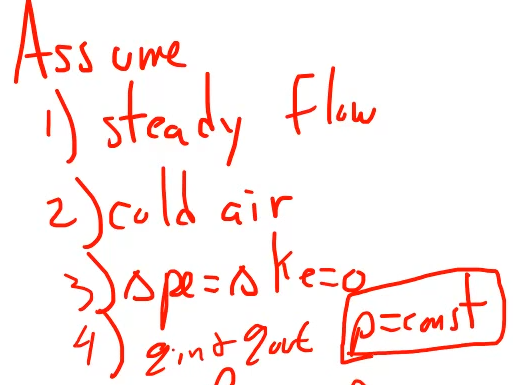 Assume
1) steady flow
2) cold air
3) Δpe=Δke=0
4) qin+qout p=const